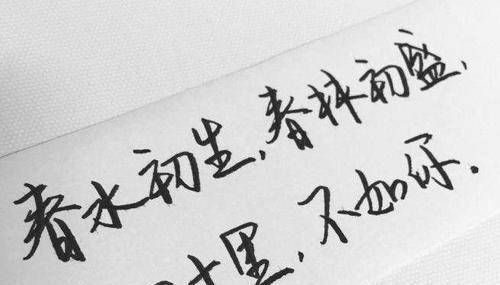 春水初生,春林初盛,
十里,不如你.